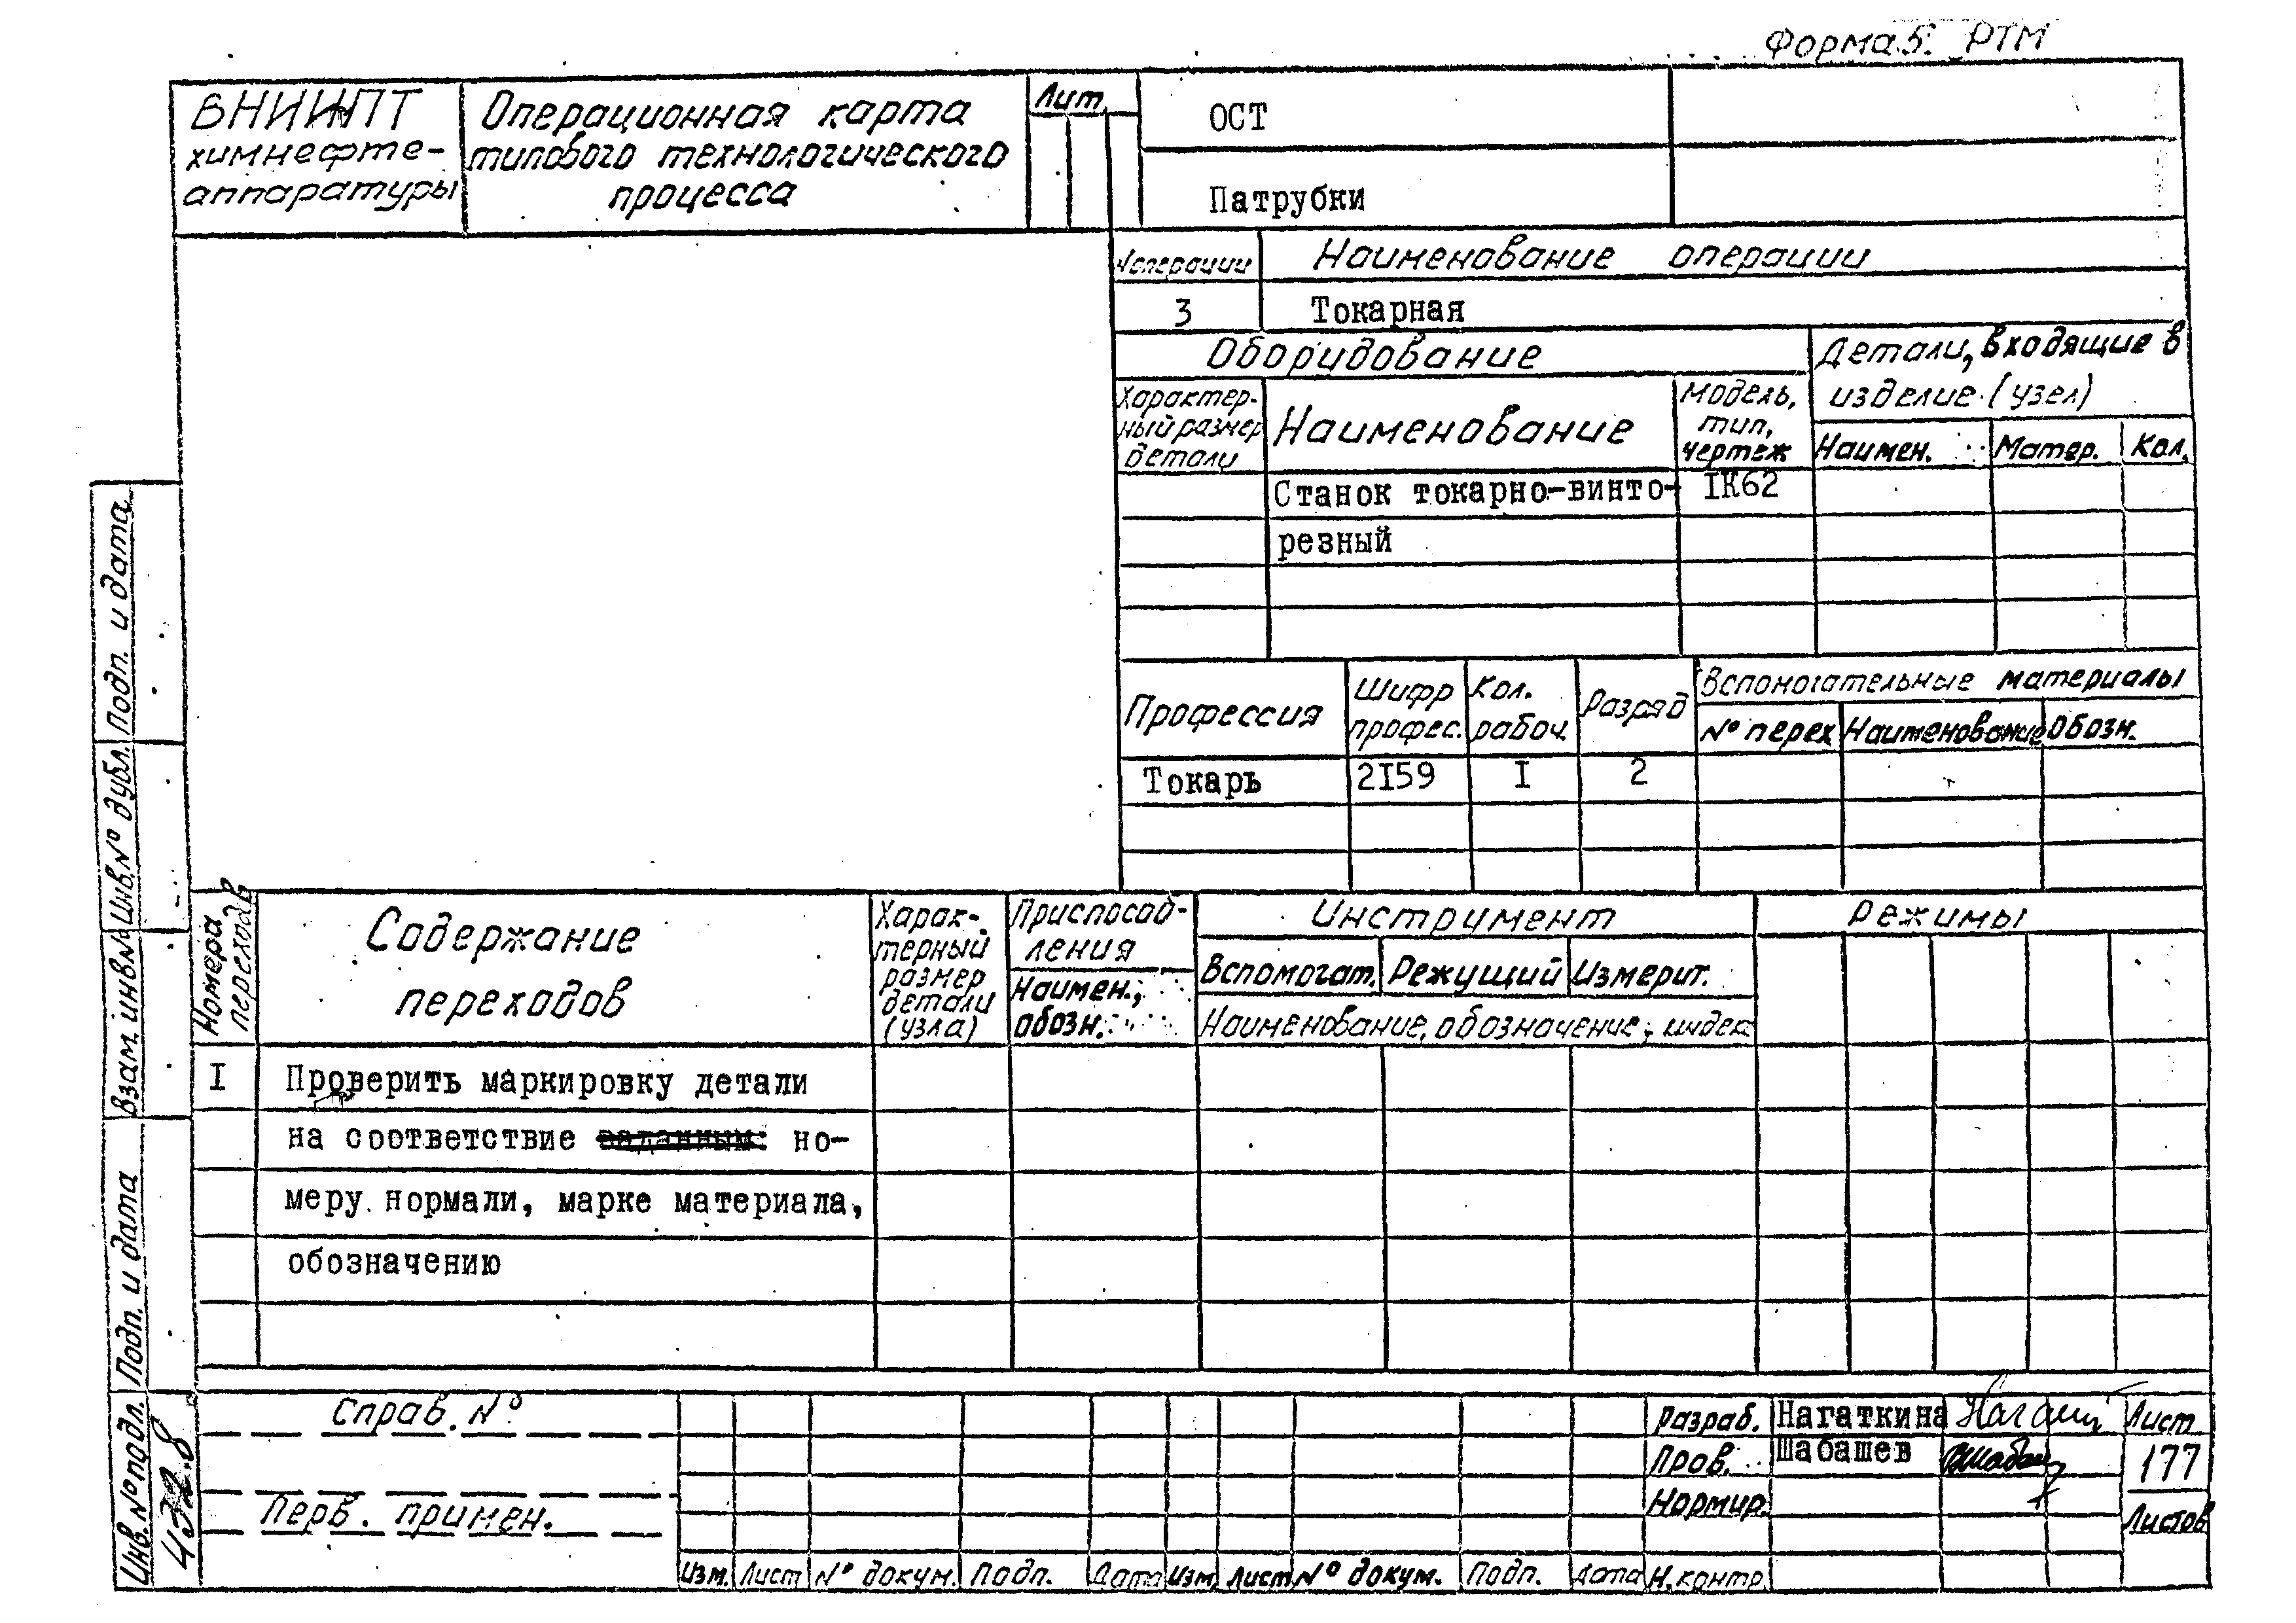 Форма 5. РТМ
ВНИИПТ
химнефте-
аппаратуры
Операционная карта
типового технологического
процесса
Лит.
ОСТ
Патрубки
№операции
Наименование операции
3
Токарная
Оборудование
Детали, входящие в
изделие (узел)
Характер-
ный размер
детали
Наименование
Модель,
тип,
чертеж
Наимен.
Матер.
Кол.
Станок токарно-винто-
IК62
резный
Профессия
Шифр
профес.
Кол.
рабоч.
Разряд
Вспомогательные материалы
№ перех
Наименование
Обозн.
Токарь
2I59
I
2
Номера
переходов
Содержание
переходов
Харак-
терный
размер
детали
(узла)
Приспособ-
ления
Наимен.,
обозн.
Инструмент
Вспомогат.
Режущий
Измерит.
Наименование, обозначение, индек
Режимы
I
Проверить маркировку детали
на соответствие заданным: но-
меру нормали, марке материала,
обозначению
Подп. и дата
Инв.№ дубл.
Взам. инв№
Подп. и дата
Инв. № подл.
Справ. №
Перв. примен.
Изм.
Лист
№ докум.
Подп.
Дата
Изм.
Лист
№ докум.
Подп.
Дата
Разраб.
Нагаткина
Пров.
Шабашев
Нормир.
Н. контр.
Лист
177
Листов